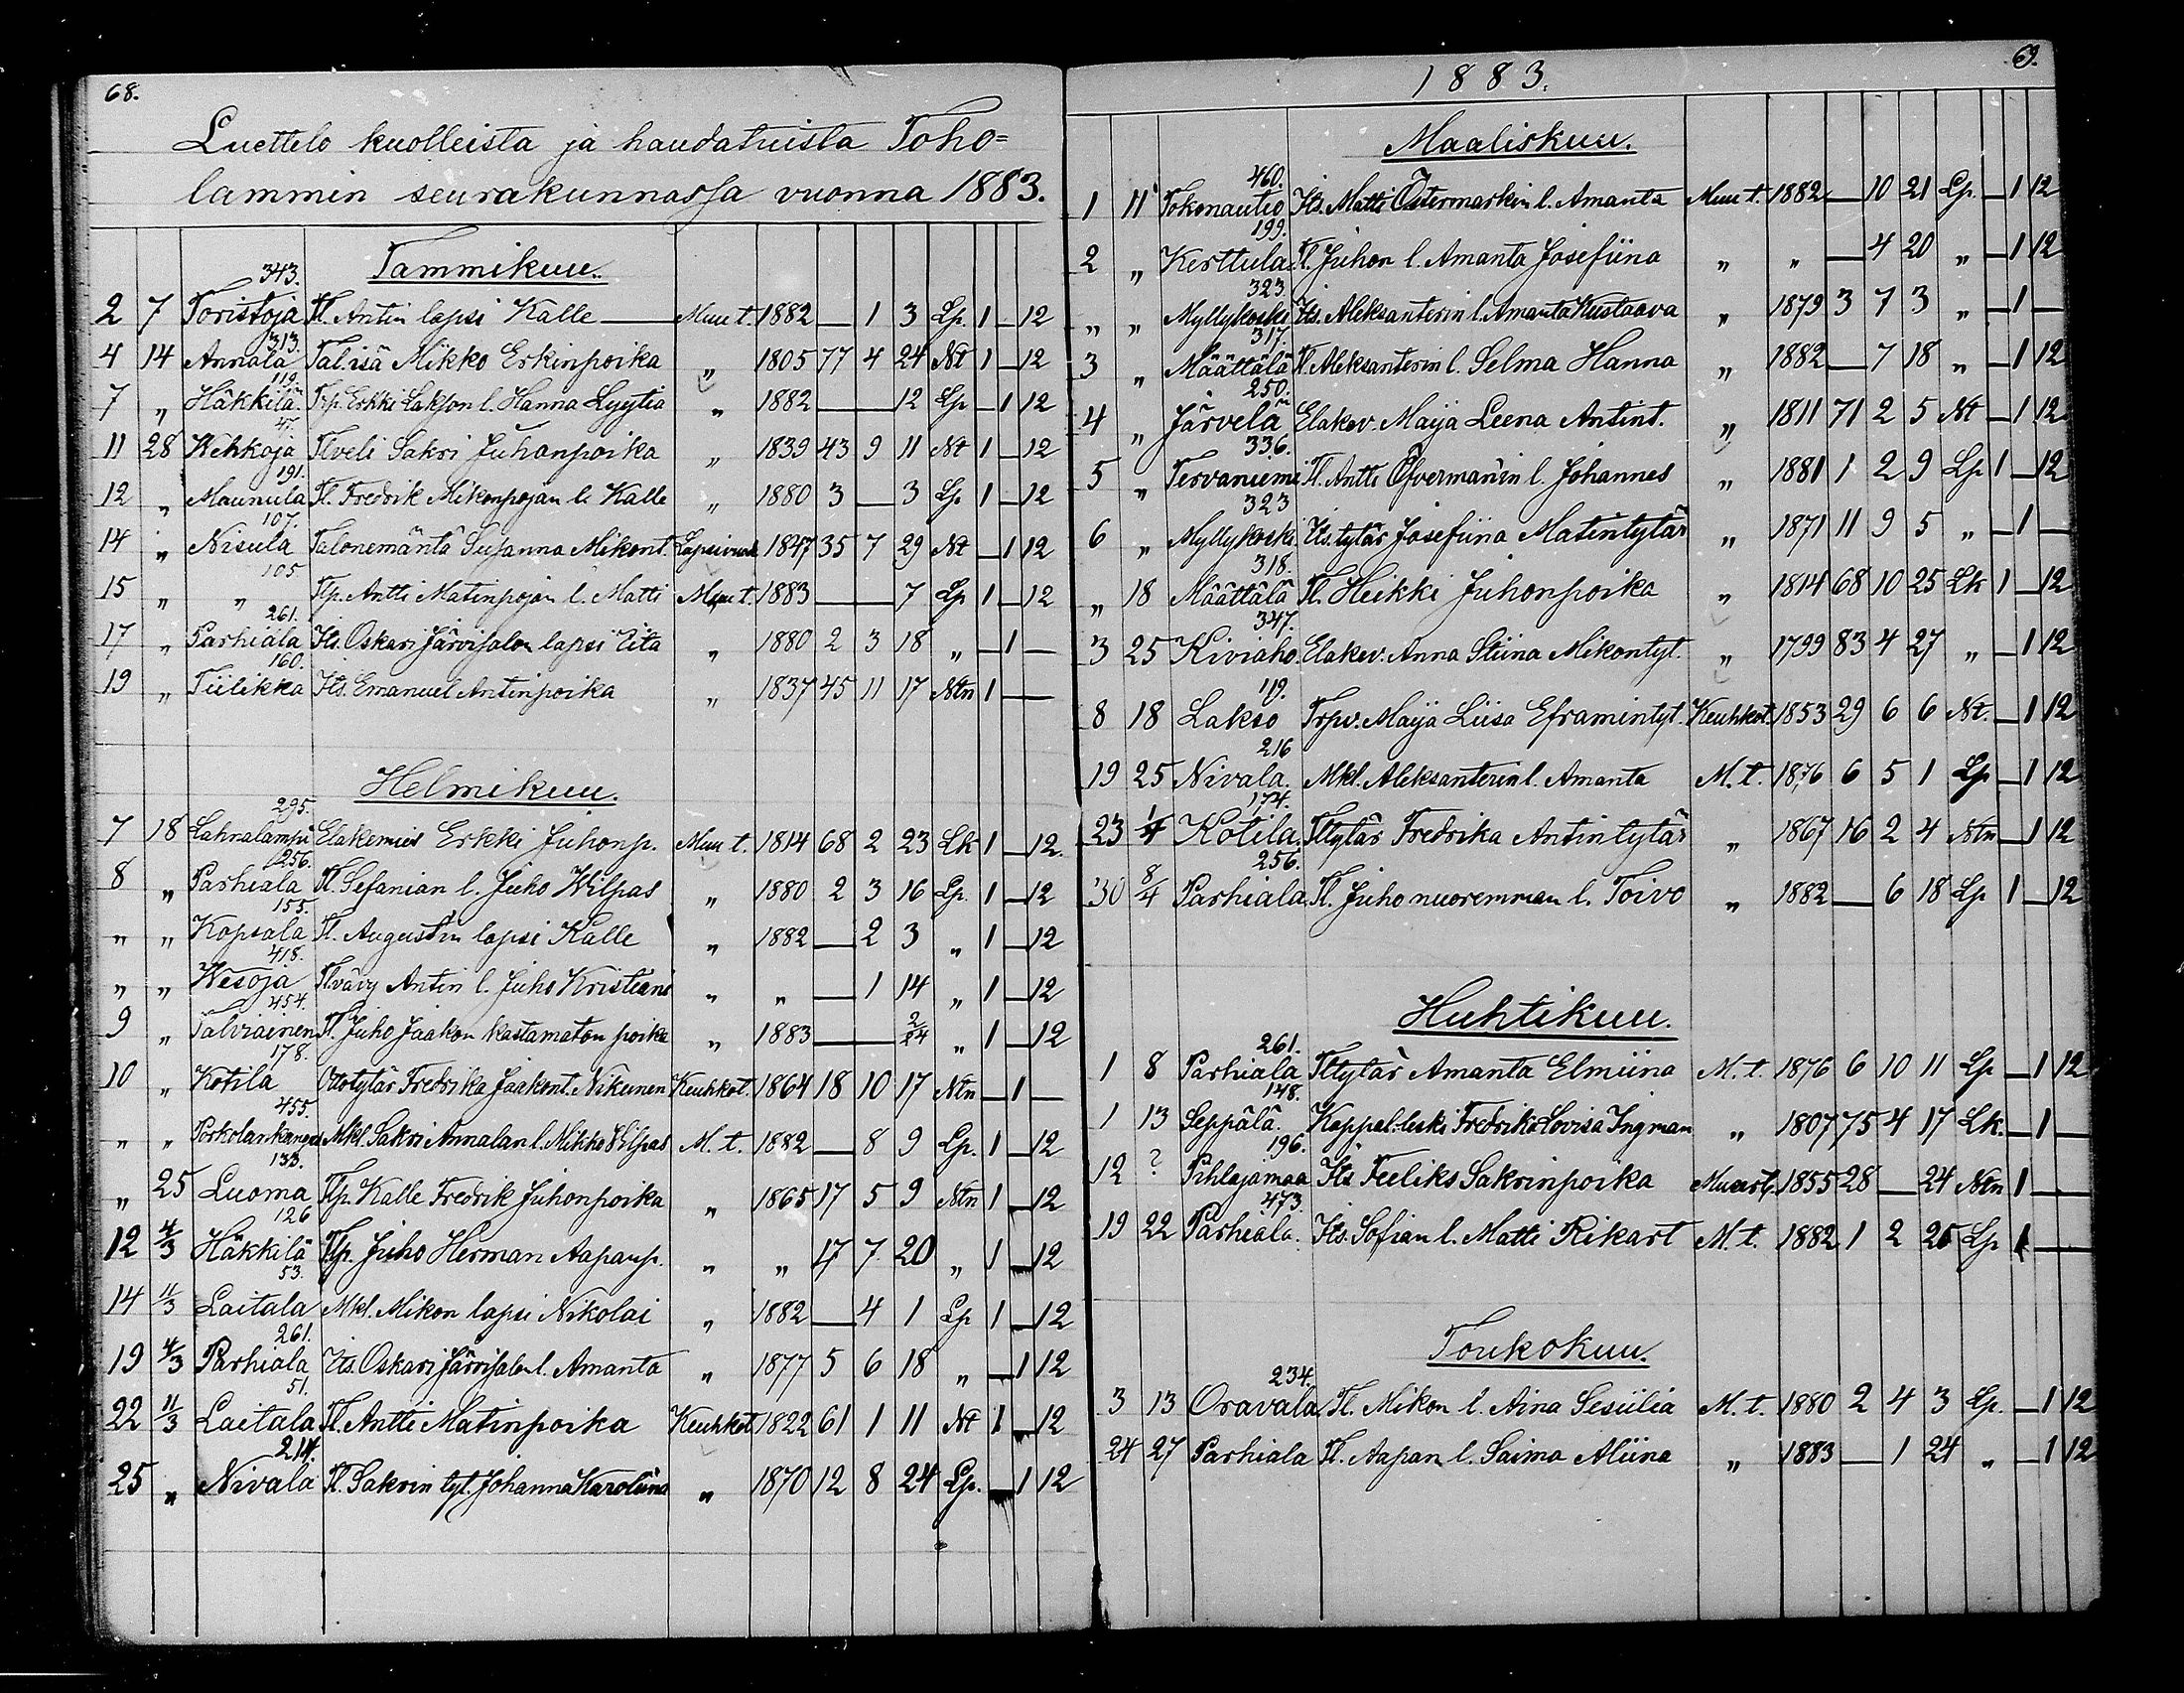 68.
Luettelo kuolleista ja haudatuista Toho=
lammin seurakunnassa vuonna 1883.
Tammikuu.
343.
2 7 Toristoja Tl. Antin lapsi Kalle — Muu t. 1882 — 1 3 Lp. 1 — 12
313.
4 14 Annala Tal. isä Mikko Erkinpoika „ 1805 77 4 24 Nt 1 — 12
119.
7 „ Häkkilä Trp. Erkki Lakson l. Hanna Lyytia „ 1882 — — 12 Lp — 1 12
47.
11 28 Wehkoja Tl veli Sakri Juhonpoika „ 1839 43 9 11 Nt 1 — 12
191.
12 „ Maunula Tl. Fredrik Mikonpojan l. Kalle „ 1880 3 — 3 Lp. 1 — 12
107.
14 „ Nisula Talonemäntä Susanna Mikont. Lapsivuod. 1847 35 7 29 Nt — 1 12
105.
15 „ „ Tlp. Antti Matinpojan l. Matti Muu t. 1883 — — 7 Lp 1 — 12
261.
17 „ Parhiala Its. Oskari Järvisalon lapsi Eita „ 1880 2 3 18 „ — 1 —
160.
19 „ Tiilikka Its. Emanuel Antinpoika „ 1837 45 11 17 Ntn 1 —
Helmikuu.
295.
7 18 Lahnalampi Elakemies Erkki Juhonp. Muu t. 1814 68 2 23 Lk 1 — 12.
256.
8 „ Parhiala Tl. Sefanian l. Juho Wilpas „ 1880 2 3 16 Lp. 1 — 12
155.
„ „ Kopsala Tl. Augustin lapsi Kalle „ 1882 — 2 3 „ 1 — 12
418.
„ „ Wesoja Tl. vävy Antin l. Juho Kristiani „ „ — 1 14 „ 1 — 12
454.
9 „ Talviainen Tl. Juho Jaakon kastamaton poika „ 1883 — — 2/24 „ 1 — 12
178.
10 „ Kotila Ottotytär Fredrika Jaakont. Nikunen Keuhkot. 1864 18 10 17 Ntn — 1 —
455.
„ „ Porkolankangas Mkl. Sakri Annalan l. Mikko Wilpas M. t. 1882 — 8 9 Lp. 1 — 12
133.
„ 25 Luoma Tlp. Kalle Fredrik Juhonpoika „ 1865 17 5 9 Ntn 1 — 12
126
12 4/3 Häkkilä Tlp. Juho Herman Aapanp. „ „ 17 7 20 „ 1 — 12
53.
14 11/3 Laitala Mkl. Mikon lapsi Nikolai „ 1882 — 4 1 Lp 1 — 12
261.
19 4/3 Parhiala Its. Oskari Järvisalon l. Amanta „ 1877 5 6 18 „ — 1 12
51.
22 11/3 Laitala Tl. Antti Matinpoika Keuhkot 1822 61 1 11 Nt 1 — 12
214.
25 „ Nivala Tl. Sakrin tyt. Johanna Karoliina „ 1870 12 8 24 Lp. — 1 12
69.
1883.
Maaliskuu.
460.
1 11 Tokonautio Its. Matti Östermarkin l. Amanta Muu t. 1882 — 10 21 Lp. — 1 12
199.
2 „ Kerttula Tl. Juhon l. Amanta Josefiina „ „ — 4 20 „ — 1 12
323.
„ „ Myllykoski Its. Aleksanterin l. Amanta Kustaava „ 1879 3 7 3 „ — 1 —
317.
3 „ Määttälä Tl. Aleksanterin l. Selma Hanna „ 1882 — 7 18 „ — 1 12
250.
4 „ Järvelä Elakev. Maija Leena Antint. „ 1811 71 2 5 Nt — 1 12
336.
5 „ Tervaniemi Tl. Antti Öfvermanin l. Johannes „ 1881 1 2 9 Lp 1 — 12
323
6 „ Myllykoski Its. tytär Josefiina Matintytär „ 1871 11 9 5 „ — 1 —
318.
„ 18 Määttälä Tl. Heikki Juhonpoika „ 1814 68 10 25 Lk 1 — 12
347.
3 25 Kiviaho Elakev. Anna Stiina Mikontyt. „ 1799 83 4 27 „ — 1 12
119.
8 18 Lakso Trpv. Maija Liisa Eframintyt. Keuhkot. 1853 29 6 6 Nt. — 1 12
216
19 25 Nivala. Mkl. Aleksanterin l. Amanta M. t. 1876 6 5 1 Lp — 1 12
174.
23 1/4 Kotila. Tltytär Fredrika Antintytär „ 1867 16 2 4 Ntn — 1 12
256.
30 8/4 Parhiala Tl. Juho nuoremman l. Toivo „ 1882 — 6 18 Lp 1 — 12
Huhtikuu.
261.
1 8 Parhiala Tltytär Amanta Elmiina M. t. 1876 6 10 11 Lp — 1 12
148.
1 13 Seppälä. Kappal. leski Fredrika Lovisa Ingman „ 1807 75 4 17 Lk. — 1 —
196.
12 ? Pihlajamaa Its. Feeliks Sakrinpoika 1855 28 — 24 Ntn 1 —
473.
19 22 Parhiala. Its. Sofian l. Matti Rikart M. t. 1882 1 2 Lp 1 —
Toukokuu.
234.
3 13 Oravala Tl. Mikon l. Aina Sesiilia M. t. 1880 2 4 3 Lp. — 1 12
24 27 Parhiala Tl. Aapan l. Saima Aliina „ 1883 — 1 24 „ — 1 12